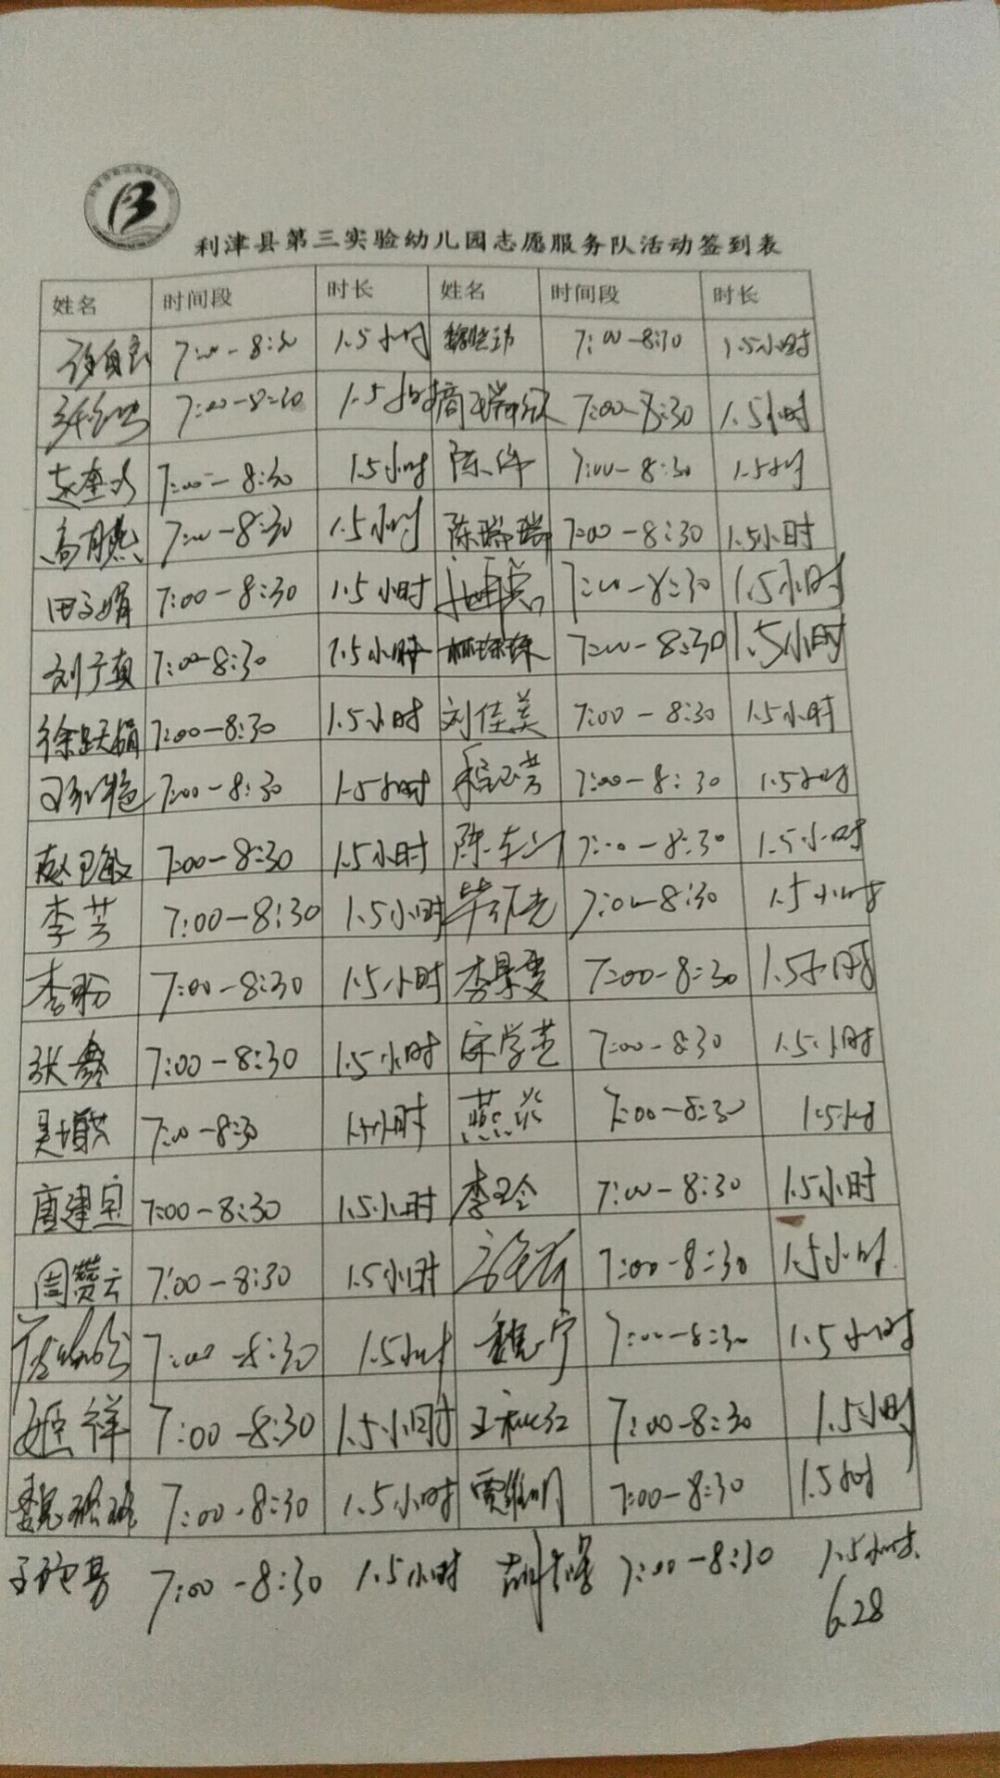 利津县第三实验幼儿园志愿服务队活动签到表
姓名 时间段 时长 姓名 时间段 时长
7:00-8:30 1.5小时 7:00-8:30 1.5小时
7:00-8:30 1.5小时 7:00-8:30 1.5小时
7:00-8:30 1.5小时 陈伟 7:00-8:30 1.5小时
高月燕 7:00-8:30 1.5小时 陈瑞瑞 7:00-8:30 1.5小时
田文娟 7:00-8:30 1.5小时 7:00-8:30 1.5小时
刘于真 7:00-8:30 1.5小时 7:00-8:30 1.5小时
徐跃娟 7:00-8:30 1.5小时 刘佳美 7:00-8:30 1.5小时
7:00-8:30 1.5小时 程玉芳 7:00-8:30 1.5小时
赵卫敏 7:00-8:30 1.5小时 7:00-8:30 1.5小时
李芳 7:00-8:30 1.5小时 7:00-8:30 1.5小时
李盼 7:00-8:30 1.5小时 李景雯 7:00-8:30 1.5小时
张鑫 7:00-8:30 1.5小时 宋学芝 7:00-8:30 1.5小时
7:00-8:30 1.5小时 7:00-8:30 1.5小时
唐建宝 7:00-8:30 1.5小时 李玲 7:00-8:30 1.5小时
周赞云 7:00-8:30 1.5小时 7:00-8:30 1.5小时
7:00-8:30 1.5小时 魏宁 7:00-8:30 1.5小时
姬祥 7:00-8:30 1.5小时 王秋红 7:00-8:30 1.5小时
7:00-8:30 1.5小时 贾维明 7:00-8:30 1.5小时
7:00-8:30 1.5小时 7:00-8:30 1.5小时
6.28